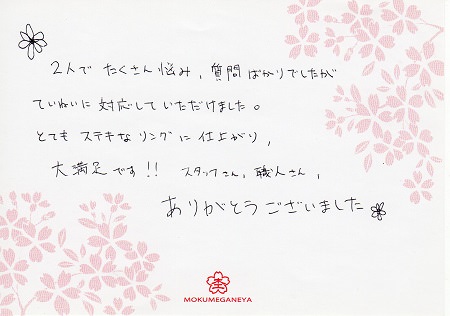 2人で たくさん悩み、質問ばかりでしたが
ていねいに対応していただけました。
とてもステキなリングに仕上がり、
大満足です!! スタッフさん、職人さん、
ありがとうございました
MOKUMEGANEYA